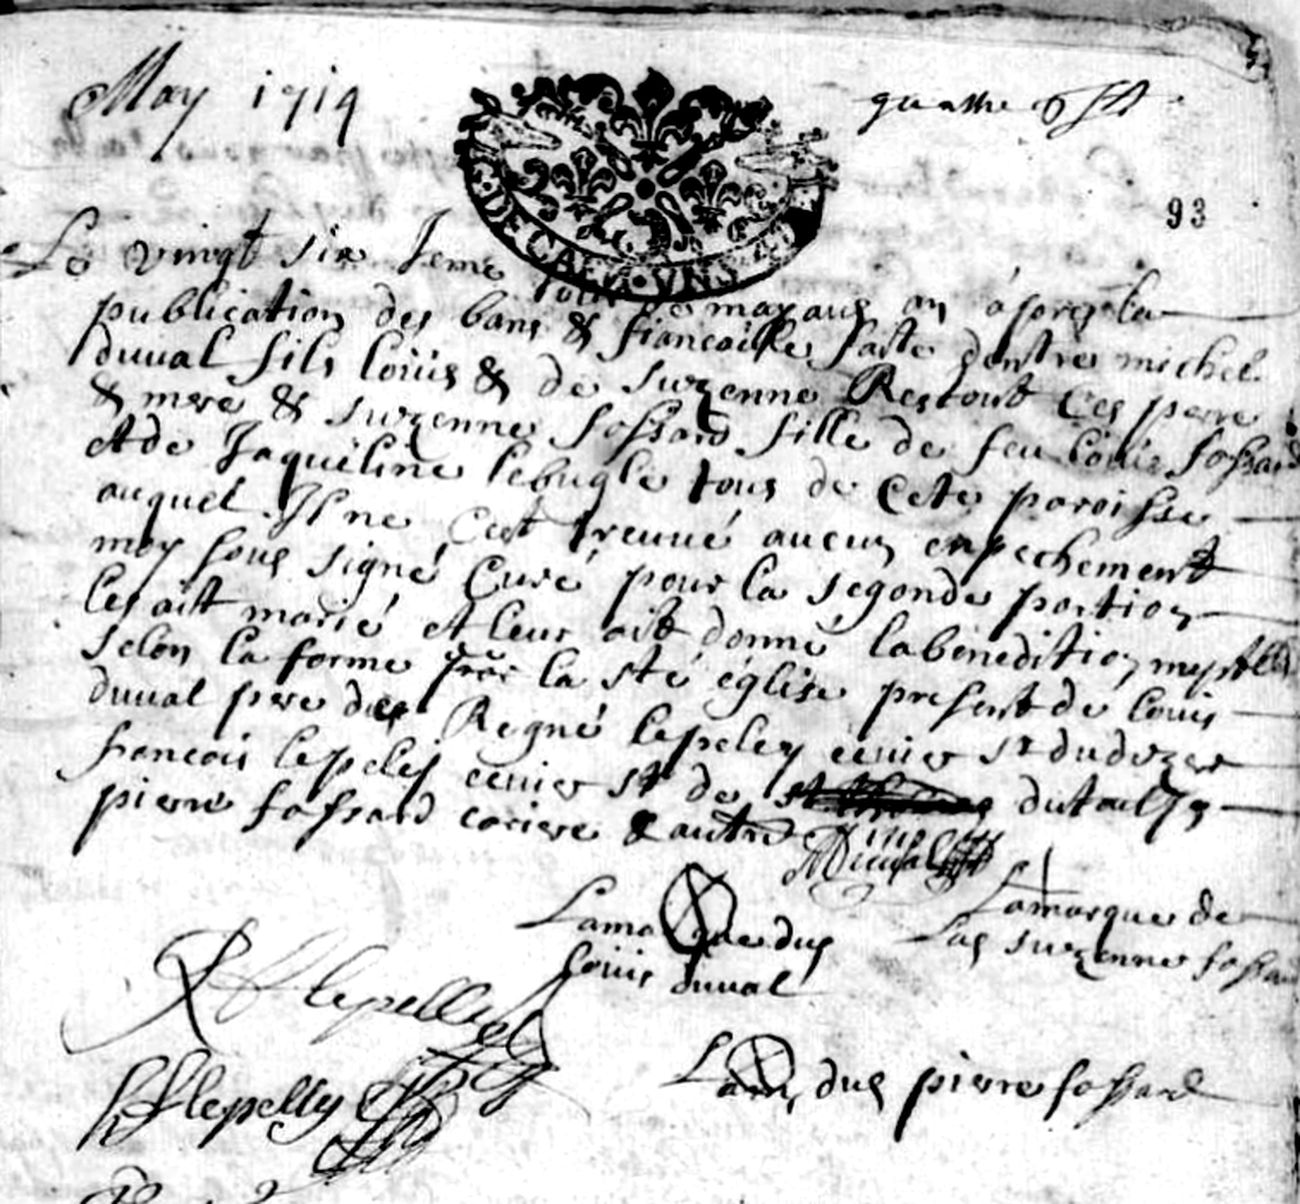 May 1714
quatre
93
DE CAEN VNS
Le vingt six Ieme jour de may aud an apres la
publication des bans & fiancaille faite dentre michel
duval fils loüis & de suzenne Restout Ces pere
& mere & suzenne fossard fille de feu loüis fossard
et de Jaqueline lebugle tous de Cete paroisse
auquel Il ne Cest treuué aucun enpechement
moy sous signé Curé pour la segonde portion
les ait marié et leur ait donné la benedition nuptille
selon la forme de la ste église present de louis
duval pere dud Regné lepeley ecuier sr dudezert
francois lepeley ecuier sr de dutailly
pierre fossard & autre
MDuval
Lamarque de
Lad suzenne fossard
Lamarque dud
louis duval
lepelley
lepelley
La dud pierre fossard